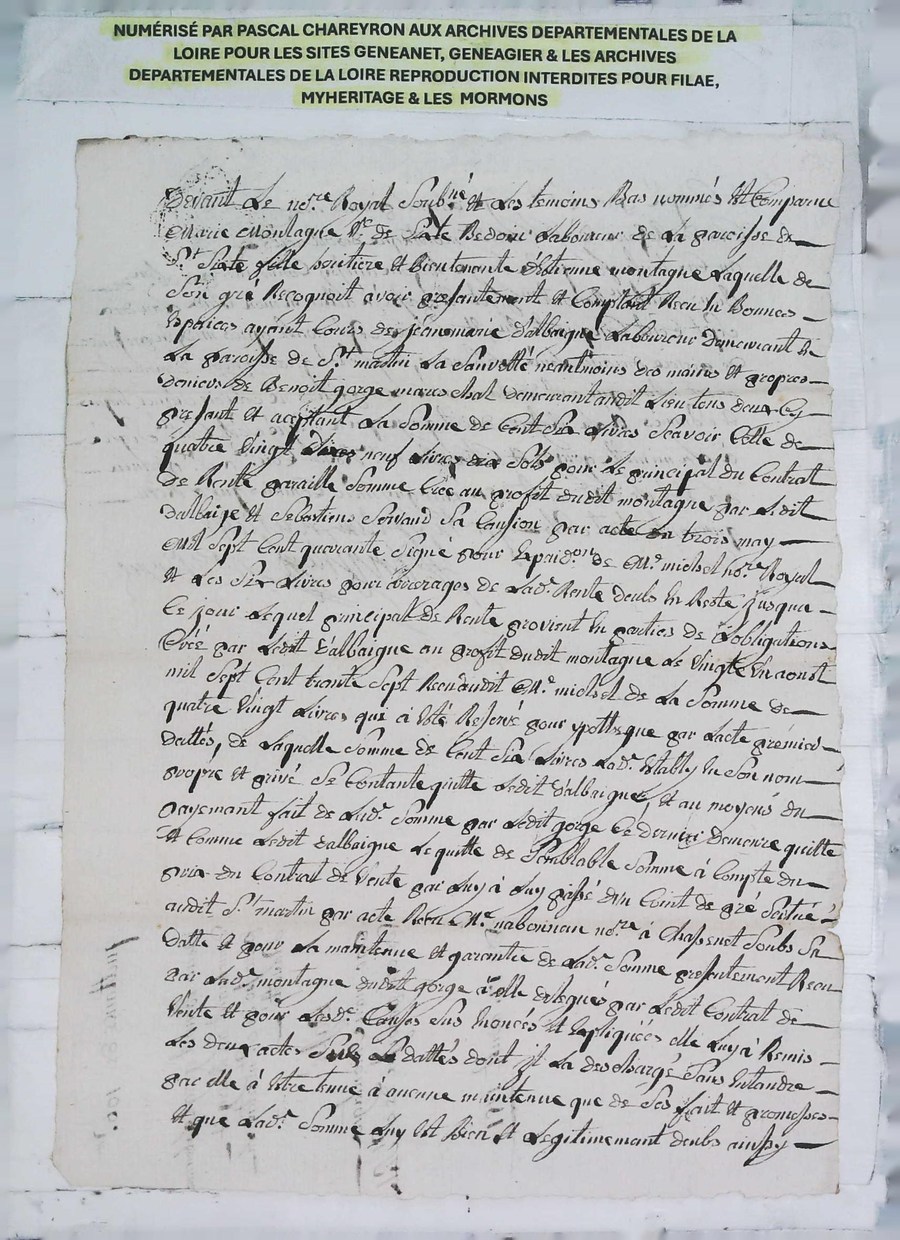 NUMÉRISÉ PAR PASCAL CHAREYRON AUX ARCHIVES DEPARTEMENTALES DE LA
LOIRE POUR LES SITES GENEANET, GENEAGIER & LES ARCHIVES
DEPARTEMENTALES DE LA LOIRE REPRODUCTION INTERDITES POUR FILAE,
MYHERITAGE & LES MORMONS
Devant Le no.re Royal Soub.né et Les temoins Bas nommés Est Comparue
Marie Montagne V.e de Laboureur de La paroisse de
S.t fille heritiere et Bientenante d'Estienne montagne Laquelle de
Son gré Recognoit avoir presantement et Comptant Receu En Bonnes
Espaices ayant Cours de jeanmarie d'albaigue Laboureur demeurant En
La paroisse de S.t martin La Sauvetté neantmoins des mains et propres
deniers de Benoit gorge mareschal demeurant audit Lieu tous deux Cy
presant et aceptant La Somme de Cent Six Livres Scavoir Celle de
quatre Vingt neuf Livres dix Sols pour Le principal du Contrat
de Rente paraille Somme Créé au profit dudit montagne par Ledit
dalbaigue et Sebastien Servand Sa Caution par acte du trois may
Mil Sept Cent quarante Signé pour Expedon de M.e michel no.re Royal
et Les Six Livres pour arrerages de Lad.e Rente deubs En Reste jusqua
Ce jour Lequel principal de Rente provient En parties de Lobligations
Créé par Ledit d'albaigue au profit dudit montagne Le Vingt Un aoust
mil Sept Cent trante Sept Receu dudit M.e michel de La Somme de
quatre Vingt Livres qui à Esté Reservé pour ypotheque par Lacte premier
dattés, de Laquelle Somme de Cent Six Livres Lad.e Establÿ En Son nom
propre et privé Se Contante quitte Ledit d'albaigue, et au moyens du
payemant fait de Lad.e Somme par Ledit gorge Ce dernier Demeure quitte
Et Comme Ledit dalbaigue Le quitte de Semblable Somme à Compte du
prix du Contrat de Vente par Luy à Luy passé d'un Coint de pré Scitué
audit S.t martin par acte Receu M.e no.re à Soubs Sa
datte et pour La maintenue et garantie de Lad.e Somme presentement Receu
par Lad.e montagne dudit gorge à elle delegués par Ledit Contrat de
Vente et pour Lesd.e Causes Sus Enoncés et Expliquéés elle Luy à Remis
Les deux actes Sus dattés dont jl La descharge Sans Entandre
par elle à Estre tenue à aucune maintenue que de Ses fait et promesses
Et que Lad.e Somme Luy Est Bien et Legitimemant deube ainsy